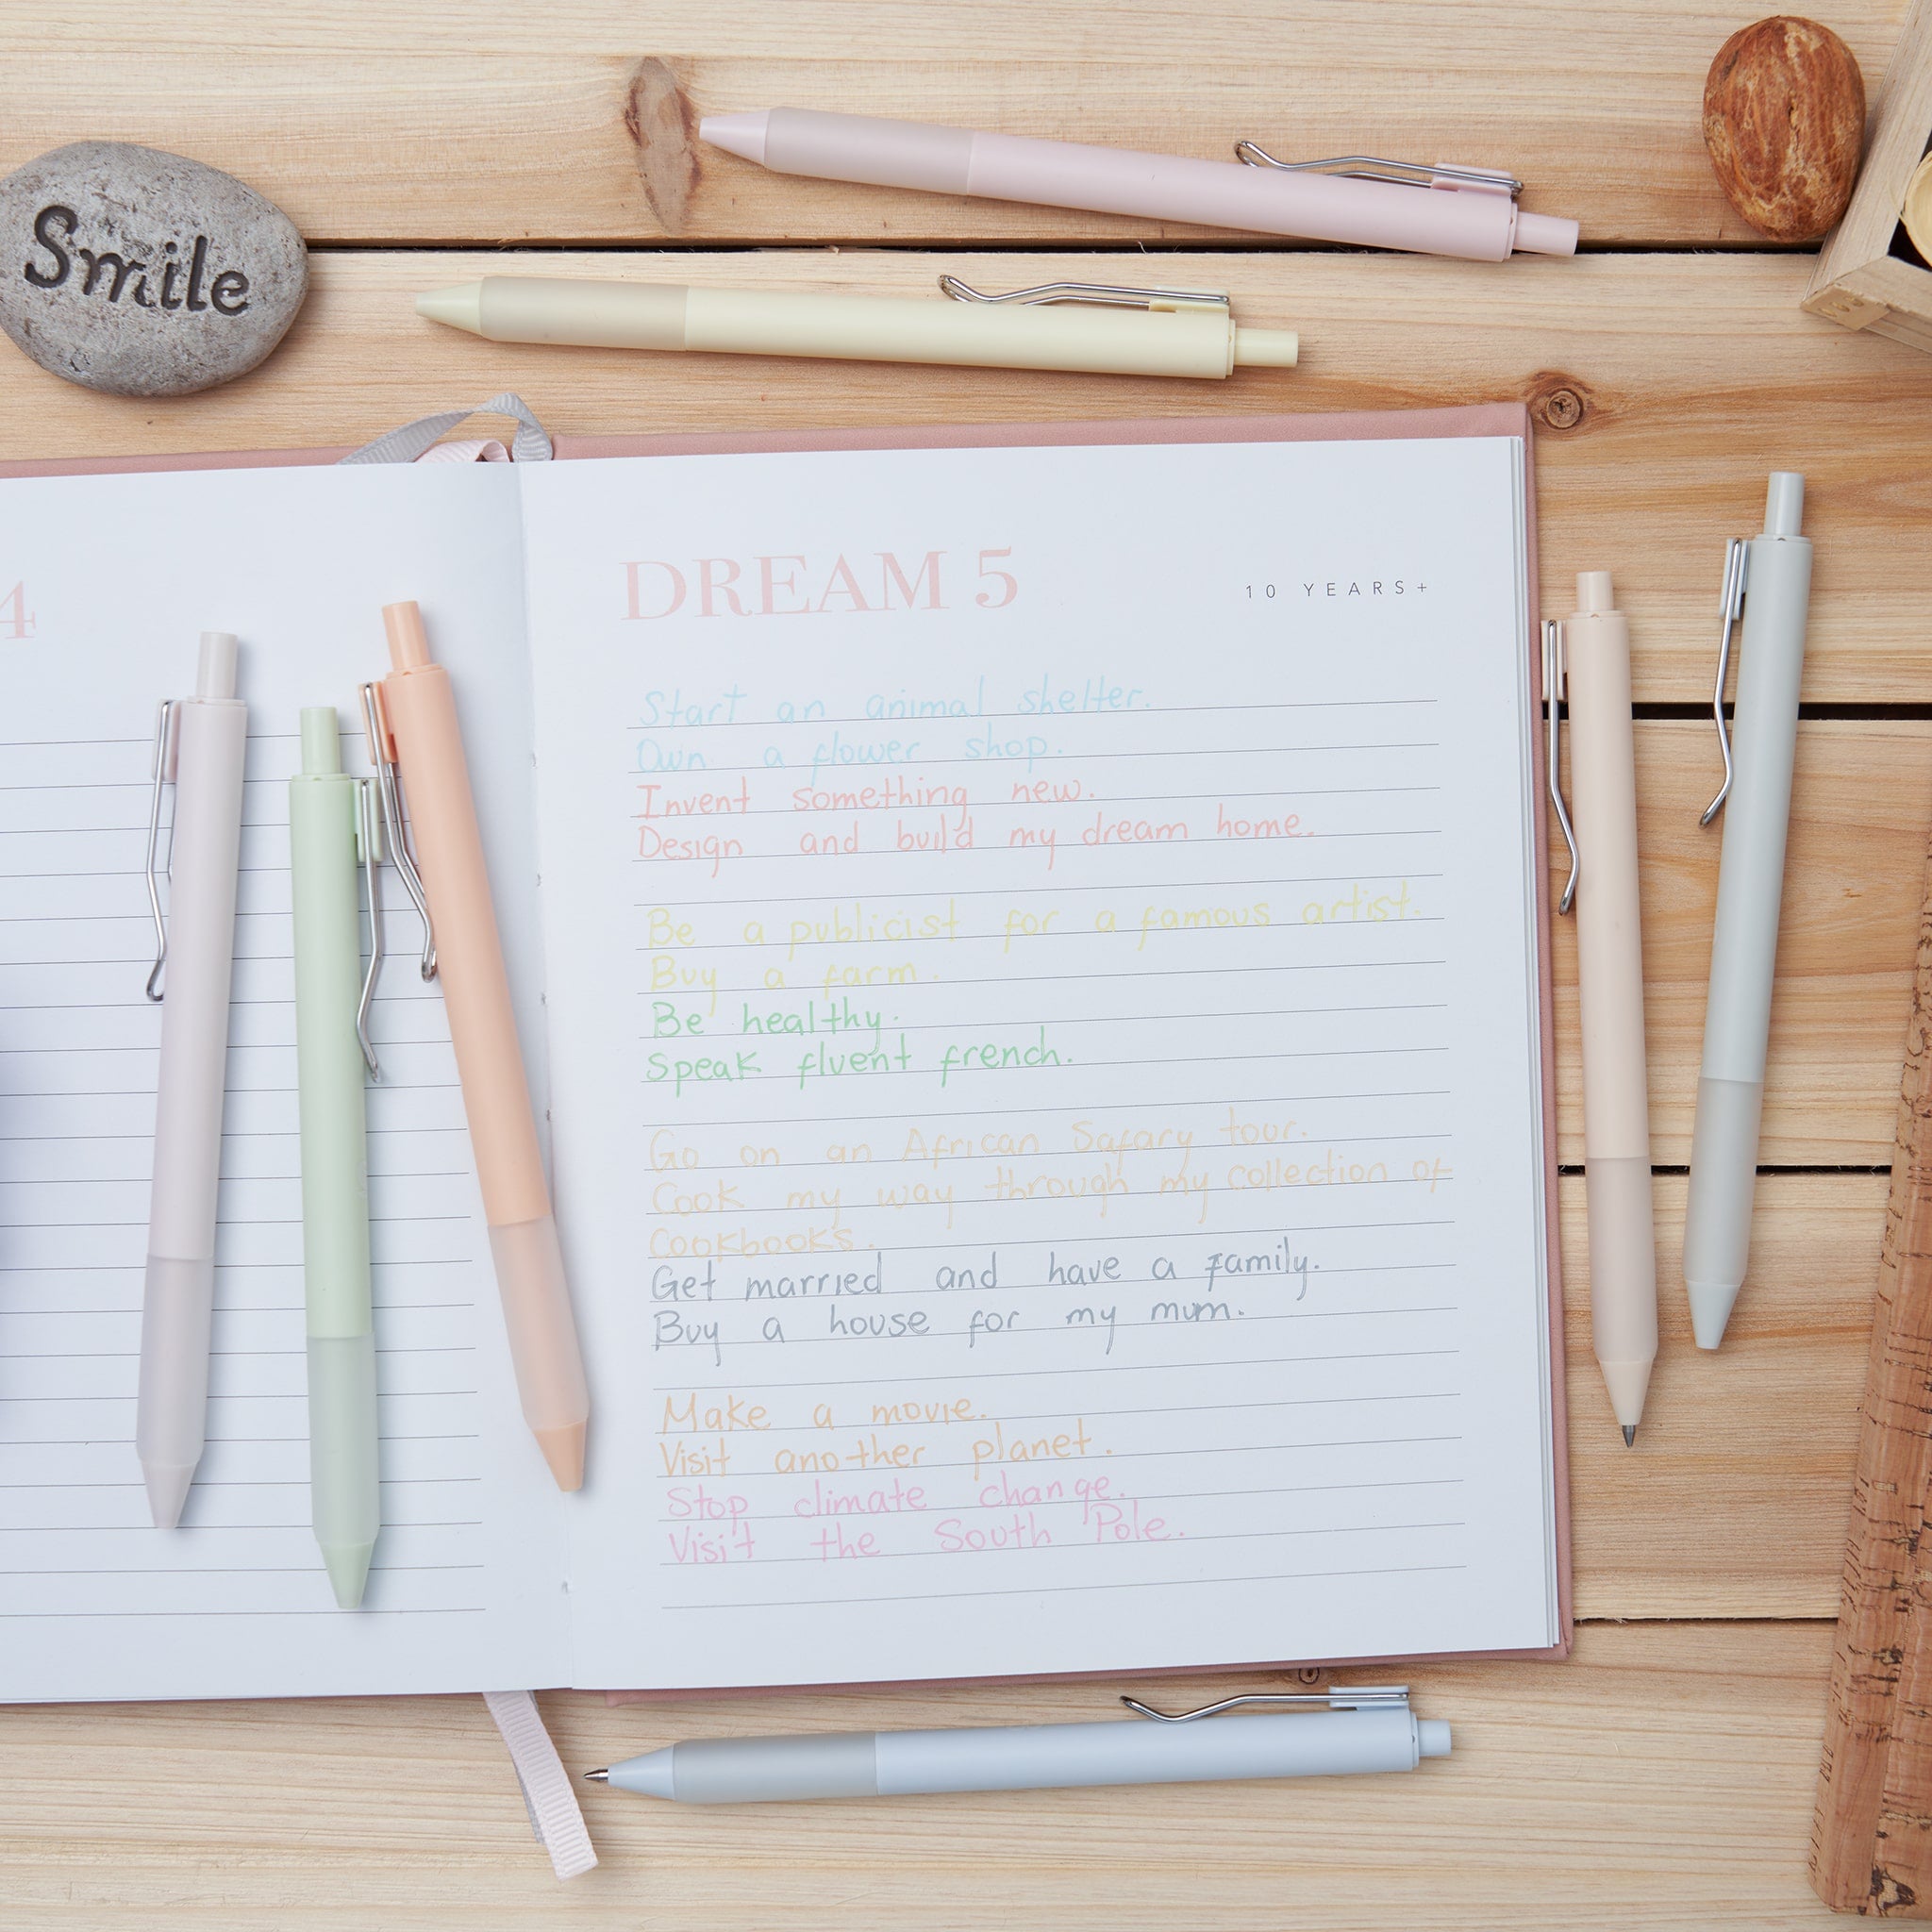 Smile
4
DREAM 5
10 YEARS+
Start an animal shelter.
Own a flower shop.
Invent something new.
Design and build my dream home.
Be a publicist for a famous artist.
Buy a farm.
Be healthy.
Speak fluent french.
Go on an African Safary tour.
Cook my way through my collection of
Cookbooks.
Get married and have a family.
Buy a house for my mum.
Make a movie.
Visit another planet.
Stop climate change.
Visit the South Pole.